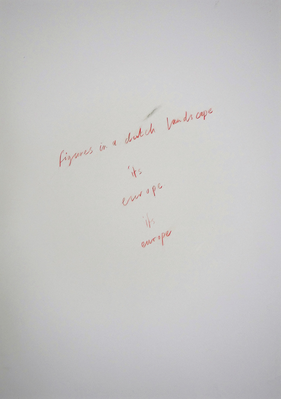 figures in a dutch landscape
its
europe
its
europe